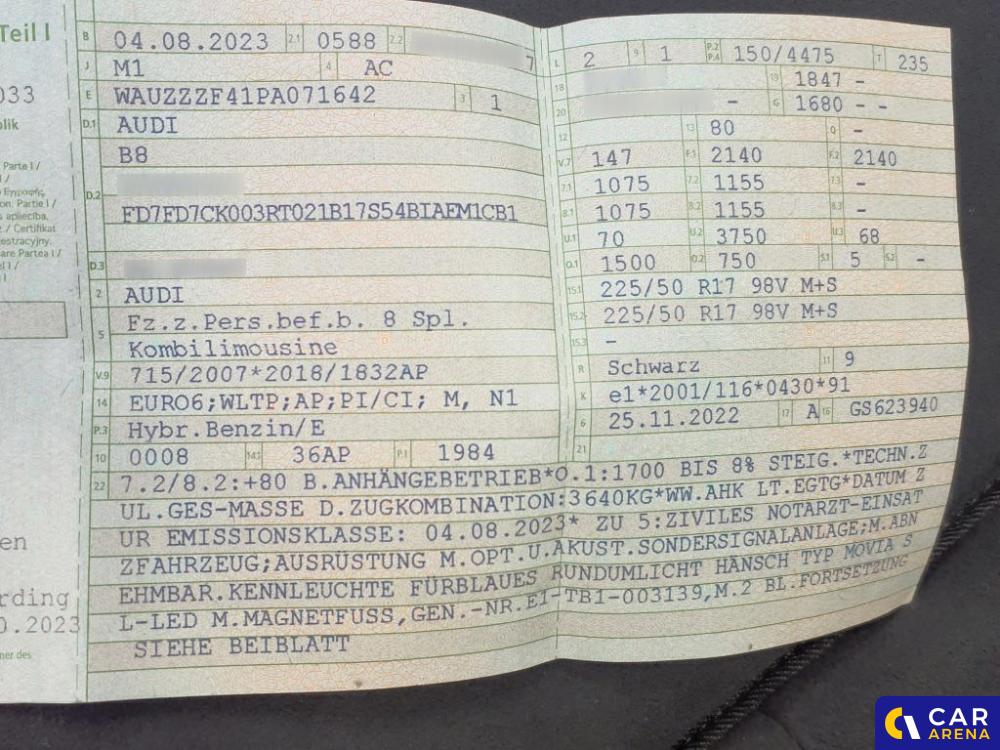 Teil I
033
blik
Parte I /
n. Partie I /
s apliecība.
. / Certifikat
estracyjny.
are Partea I /
el I /
en
rding
0.2023
ner des
B 04.08.2023 2.1 0588 2.2 7
J M1 4 AC
E WAUZZZF41PA071642 3 1
D.1 AUDI
B8
D.2
FD7FD7CK003RT021B17S54BIAEM1CB1
D.3
2 AUDI
5 Fz.z.Pers.bef.b. 8 Spl.
Kombilimousine
V.9 715/2007*2018/1832AP
14 EURO6;WLTP;AP;PI/CI; M, N1
P.3 Hybr.Benzin/E
10 0008 14.1 36AP P.1 1984
L 2 9 1 P.2 P.4 150/4475 T 235
18 19 1847 -
20 - G 1680 - -
12 13 80 Q -
V.7 147 F.1 2140 F.2 2140
7.1 1075 7.2 1155 7.3 -
8.1 1075 8.2 1155 8.3 -
U.1 70 U.2 3750 U.3 68
O.1 1500 O.2 750 S.1 5 S.2 -
15.1 225/50 R17 98V M+S
15.2 225/50 R17 98V M+S
15.3 -
R Schwarz 11 9
K e1*2001/116*0430*91
6 25.11.2022 17 A 16 GS623940
21
22 7.2/8.2:+80 B.ANHÄNGEBETRIEB*O.1:1700 BIS 8% STEIG.*TECHN.Z
UL.GES-MASSE D.ZUGKOMBINATION:3640KG*WW.AHK LT.EGTG*DATUM Z
UR EMISSIONSKLASSE: 04.08.2023* ZU 5:ZIVILES NOTARZT-EINSAT
ZFAHRZEUG;AUSRÜSTUNG M.OPT.U.AKUST.SONDERSIGNALANLAGE;M.ABN
EHMBAR.KENNLEUCHTE FÜRBLAUES RUNDUMLICHT HÄNSCH TYP MOVIA S
L-LED M.MAGNETFUSS,GEN.-NR.E1-TB1-003139,M.2 BL.FORTSETZUNG
SIEHE BEIBLATT
CAR
ARENA